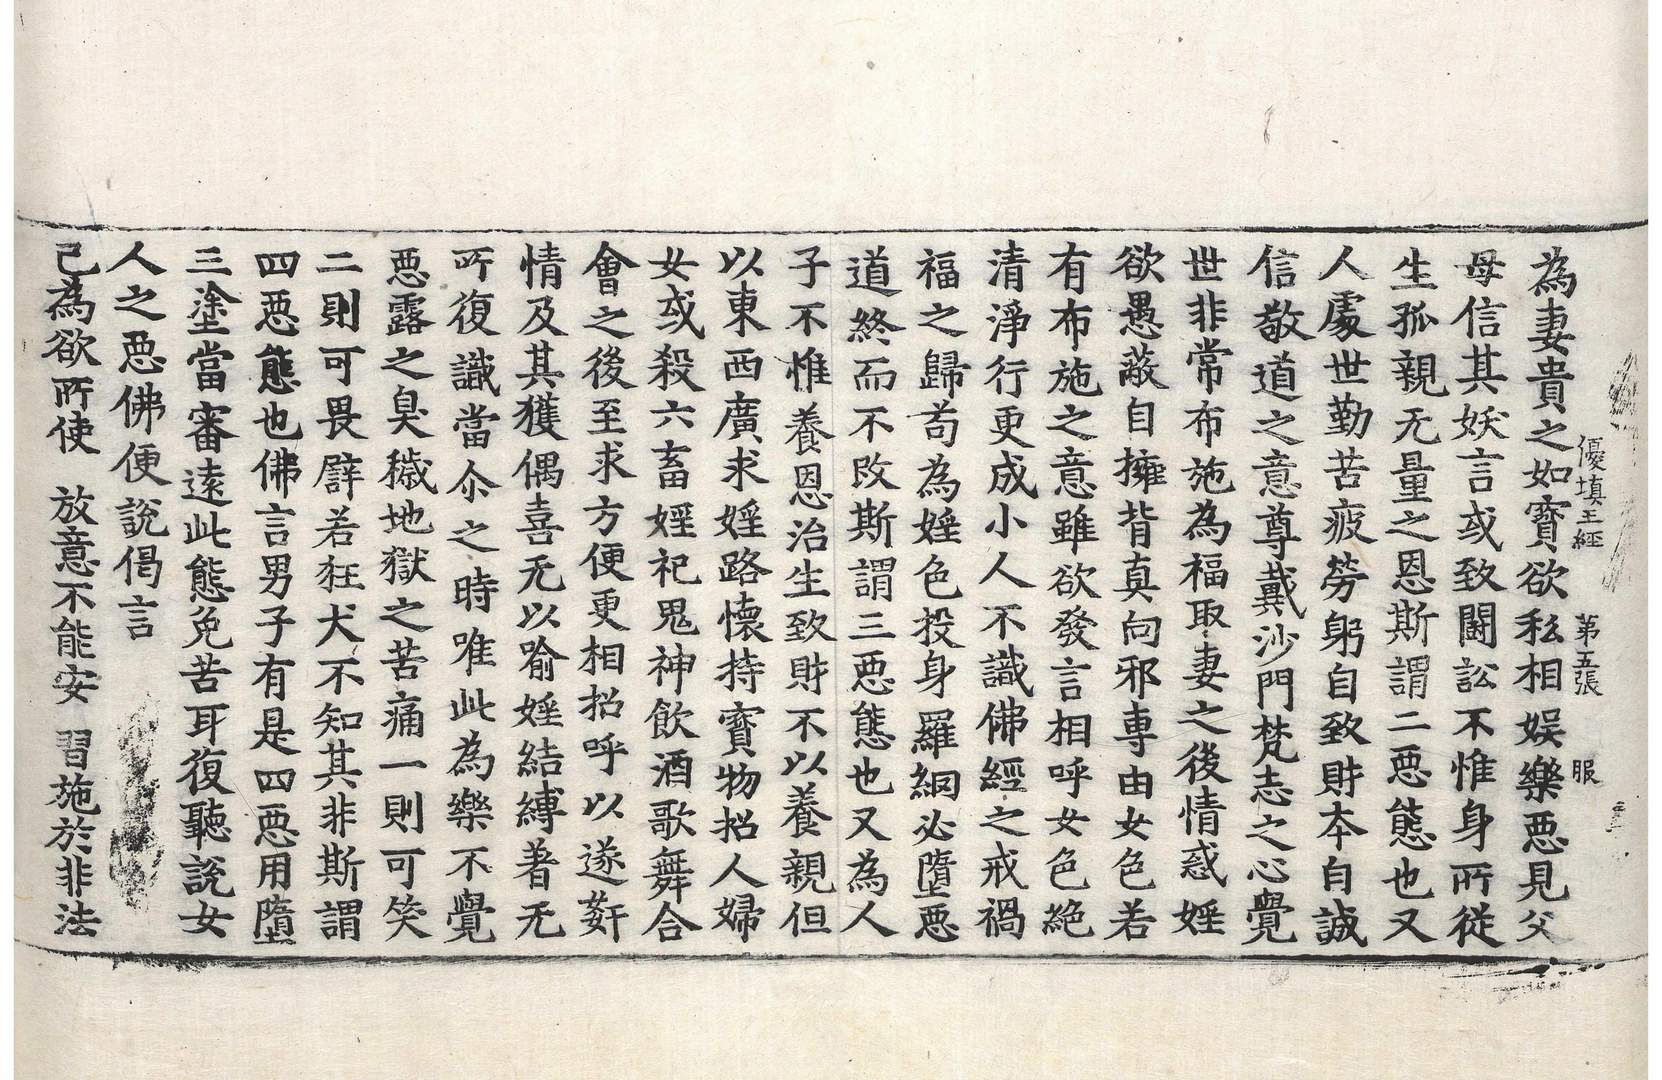 優填王經　第五張　服
為妻貴之如寳欲私相娛樂惡見父
母信其妖言或致鬪訟不惟身所從
生孤親无量之恩斯謂二惡態也又
人處世勤苦疲勞躬自致財本自誠
信敬道之意尊戴沙門梵志之心覺
世非常布施為福取妻之後情惑婬
欲愚蔽自擁背真向邪專由女色若
有布施之意雖欲發言相呼女色絶
清淨行更成小人不識佛經之戒禍
福之歸苟為婬色投身羅網必墮惡
道終而不改斯謂三惡態也又為人
子不惟養恩治生致財不以養親但
以東西廣求婬路懷持寳物招人婦
女或殺六畜婬祀鬼神飲酒歌舞合
會之後至求方便更相招呼以遂姧
情及其獲偶喜无以喻婬結縛著无
所復識當尒之時唯此為樂不覺
惡露之臭穢地獄之苦痛一則可笑
二則可畏譬若狂犬不知其非斯謂
四惡態也佛言男子有是四惡用墮
三塗當審遠此態免苦耳復聽說女
人之惡佛便說偈言
己為欲所使　放意不能安　習施於非法